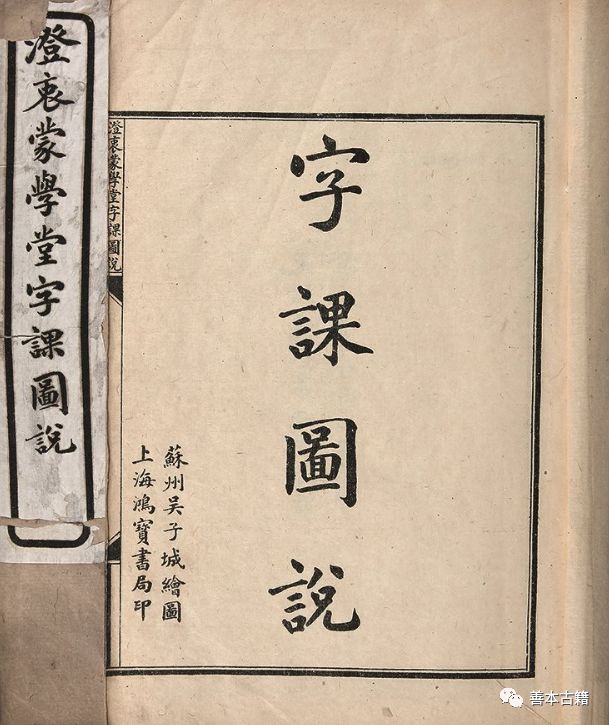 澄衷蒙學堂字課圖說
澄衷蒙學堂字課圖說
字課圖說
蘇州吴子城繪圖
上海鴻寶書局印
善本古籍